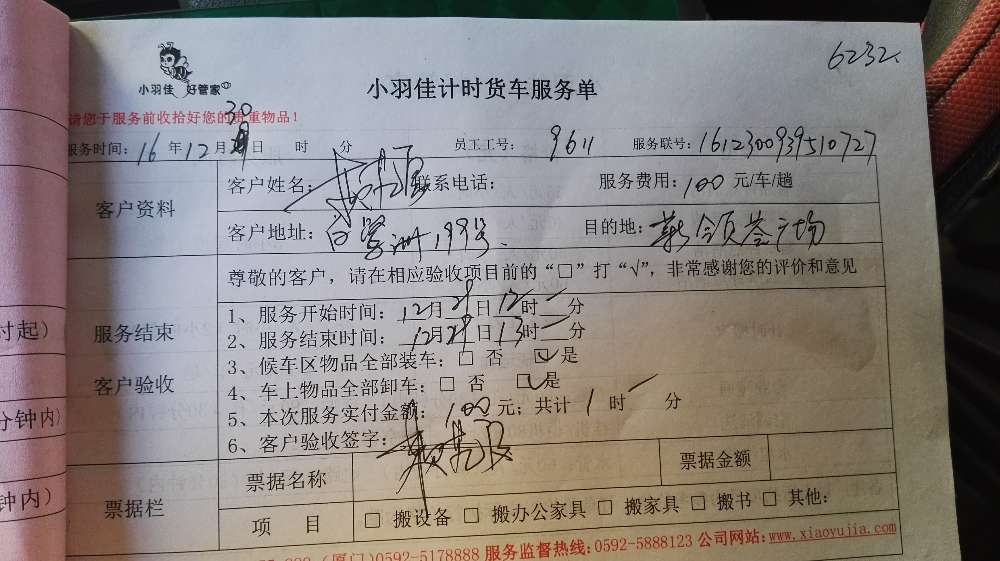 6232
小羽佳 好管家
小羽佳计时货车服务单
请您于服务前收拾好您的贵重物品！
服务时间：16年12月30日 时 分 员工工号：9611 服务联号：1612300939510727
客户资料
客户姓名： 联系电话： 服务费用：100元/车/趟
客户地址：白鹭洲199号 目的地：新领荟广场
尊敬的客户，请在相应验收项目前的“□”打“√”，非常感谢您的评价和意见
服务结束
客户验收
1、服务开始时间：12月29日12时一分
2、服务结束时间：12月29日13时一分
3、候车区物品全部装车：□ 否 ☑是
4、车上物品全部卸车：□ 否 ☑是
5、本次服务实付金额：100元；共计 1 时一 分
6、客户验收签字：
票据栏
票据名称 票据金额
项 目 □ 搬设备 □ 搬办公家具 □ 搬家具 □ 搬书 □ 其他：
(厦门)0592-5178888 服务监督热线：0592-5888123 公司网站：www.xiaoyujia.com
付起）
分钟内）
钟内）